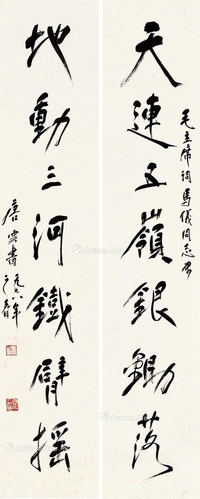 天連五嶺銀鋤落
毛主席詞 馬儀同志屬
地動三河鐵臂搖
唐雲書
一九七八年